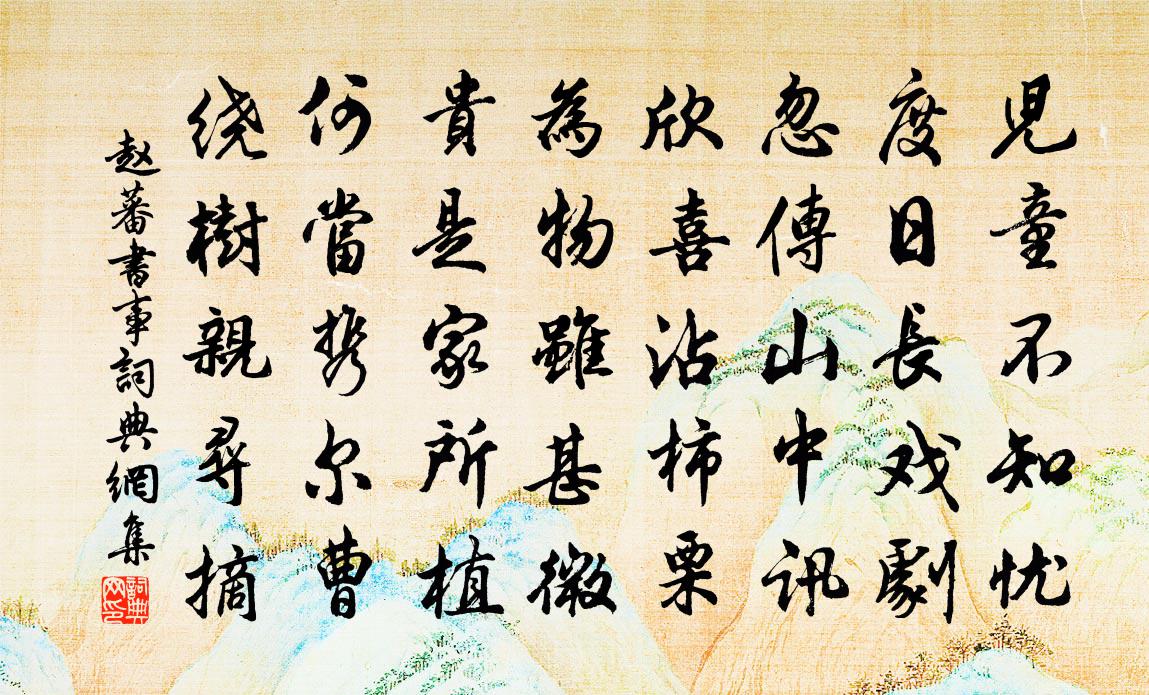 児童不知忧
度日長戏劇
忽傳山中訊
欣喜沾柿栗
為物雖甚微
貴是家所植
何當携尔曹
绕樹親尋摘
赵蕃書事詞典網集
詞典网印